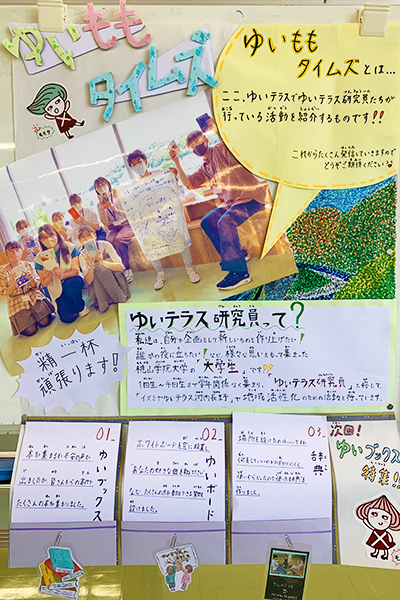 ゆいもも
タイムズ
ゆいもも
タイムズとは…
ここ、ゆいテラスでゆいテラス研究員たちが
行っている活動を紹介するものです!!
これからたくさん発信していきますので
どうぞご期待ください
精一杯
頑張ります!
ゆいテラス研究員って?
私達は、自分で企画として新しいものを作り上げたい!
誰かの役に立ちたい!など、様々な思いをもって集まった
桃山学院大学の「大学生」です
1回生~4回生まで学年関係なく集まり、「ゆいテラス研究員」と称して
「イズミヤゆいテラス河内長野」で地域活性化のための活動を行っています。
01.
ゆいブックス
たくさんの本が集まりました。
02.
ゆいボード
ホワイトボードを窓に設置し、
設けました。
03.
辞典
作りました。
次回!
ゆいブックス
特集!!